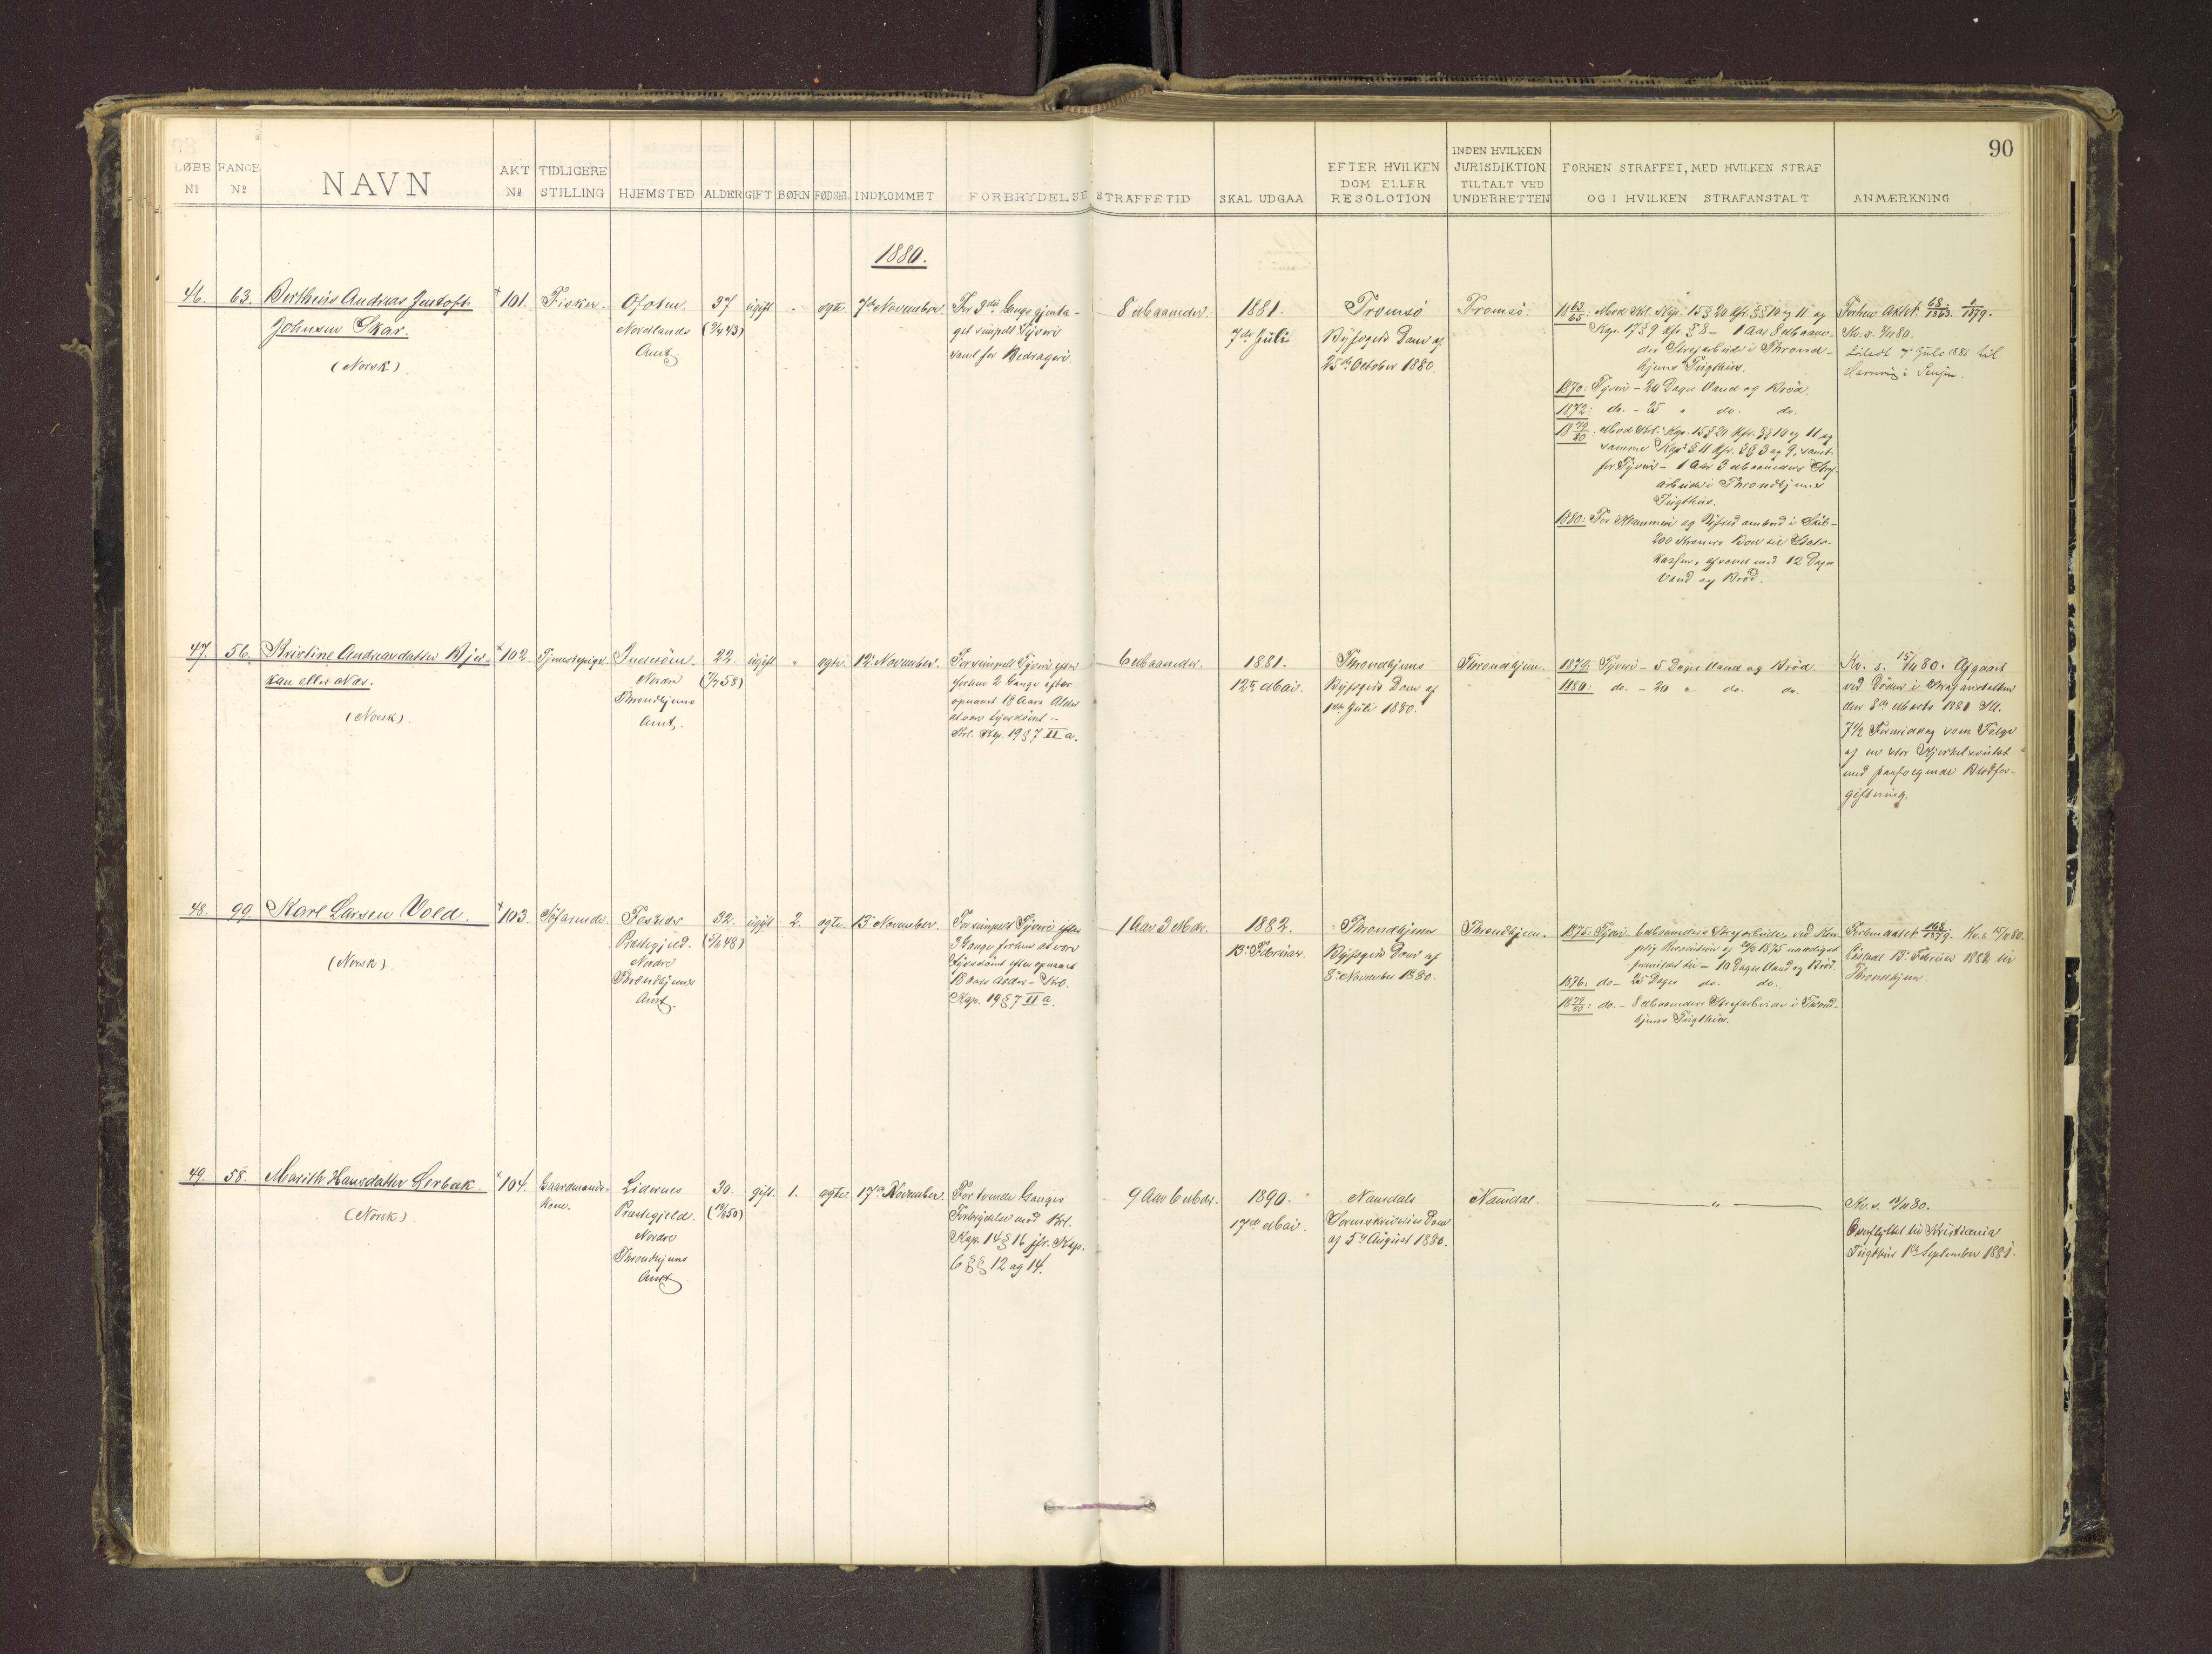 90
LØBE FANGE AKT TIDLIGERE
№ № NAVN № STILLING HJEMSTED ALDER GIFT BØRN FØDSEL INDKOMMET FORBRYDELSE STRAFFETID SKAL UDGAA
EFTER HVILKEN
DOM ELLER
RESOLOTION
INDEN HVILKEN
JURISDIKTION
TILTALT VED
UNDERRETTEN
FORHEN STRAFFET, MED HVILKEN STRAF
OG I HVILKEN STRAFANSTALT
ANMÆRKNING
1880.
46. 63. Bertheus Andreas Gustoft
Johnsen Skar.
(Norsk)
101. Fisker.
Ofoten
Nordlands
Amt.
37
ugift " ægte. 7de November
For 3die Gangs gjenta-
get simpelt Tyveri
samt for Bedrageri.
8 Maaneder.
1881.
7de Juli
Tromsø
Byfogeds Dom af
25de October 1880.
Tromsø.
18 63/65: Mod Krl. Kap. 15 § 20 jfr. §§ 10 og 11 og
Kap. 17 § 9 jfr. § 8 – 1 Aar 8 Maane-
der Strafarbeide i Thrond-
hjems Tugthus.
1870: Tyveri – 20 Dages Vand og Brød.
1872: do. – 25 " do. do.
18 79/80: Mod Krl. Kap. 15 § 20 jfr. §§ 10 og 11 og
samme Kap. § 11 jfr. §§ 3 og 9, samt
for Tyveri – 1 Aar 3 Maaneders Straf-
arbeide i Throndhjems
Tugthus.
1880: For
200 Kroners Bod til Stats-
kassen, afsonet med 12 Dages
Vand og Brød.
Forhen Akt № 68/1863. 1/1879.
Kv. s. 9/11 80.
Løsladt 7de Juli 1881 til
i Senjen.
47. 56. Kristine Andreasdatter Bjer-
kan eller Næs.
(Norsk)
102 Tjenestepige.
Inderøen.
Nordre
Throndhjems
Amt.
22.
(7/7 58)
ugift " ægte. 12te November.
For simpelt Tyveri efter
forhen 2 Gange efter
opnaaet 18 Aars Alder
at være tyvsdømt –
Krl. Kap. 19 § 7 II a.
6 Maaneder.
1881.
12te Mai.
Throndhjems
Byfogeds Dom af
1ste Juli 1880.
Throndhjem.
1879: Tyveri – 5 Dages Vand og Brød.
1880: do. – 20 " do. do.
Kv. s. 15/11 80. Afgaaet
ved Døden i Strafanstalten
den 8de Marts 1881 Kl.
7½ Formiddag som Følge
af en stor
med paafølgende Blodfor-
giftning.
48. 99. Karl Larsen Vold.
(Norsk)
103. Sjømand.
Fosnes
Præstegjeld.
Nordre
Throndhjems
Amt.
32.
(5/6 48)
ugift 2. ægte. 13de November.
For simpelt Tyveri efter
3 Gange forhen at være
tyvsdømt efter opnaaet
18 Aars Alder – Krl.
Kap. 19 § 7 II a.
1 Aar 3 Mdr.
1882.
13de Februar.
Throndhjems
Byfogeds Dom af
8de November 1880.
Throndhjem.
1875: Tyveri – 6 Maaneders Strafarbeide, ved Kon-
gelig Resolution af 1875 naadigst
formildet til – 10 Dages Vand og Brød.
1876: do – 25 Dages do. do.
18 79/80: do. – 8 Maaneders Strafarbeide i Thrond-
hjems Tugthus.
Forhen Akt № 168/1879. Kv. s. 15/11 80.
Løsladt 13de Februar 1882 til
Throndhjem.
49. 58. Marith Hansdatter Lerbæk.
(Norsk)
104. Gaardmands-
Kone.
Liderns
Præstegjeld.
Nordre
Throndhjems
Amt
30.
gift. 1. ægte 17de November.
For tvende Ganges
Forbrydelse mod Krl.
Kap. 14 § 16 jfr. Kap.
6 §§ 12 og 14.
9 Aar 6 Mdr.
1890.
17de Mai.
Namdals
Sorenskriveries Dom
af 5te August 1880.
Namdal.
"
Kv. s. 19/11 80.
Overflyttet til Kristiania
Tugthus 1ste September 1881.